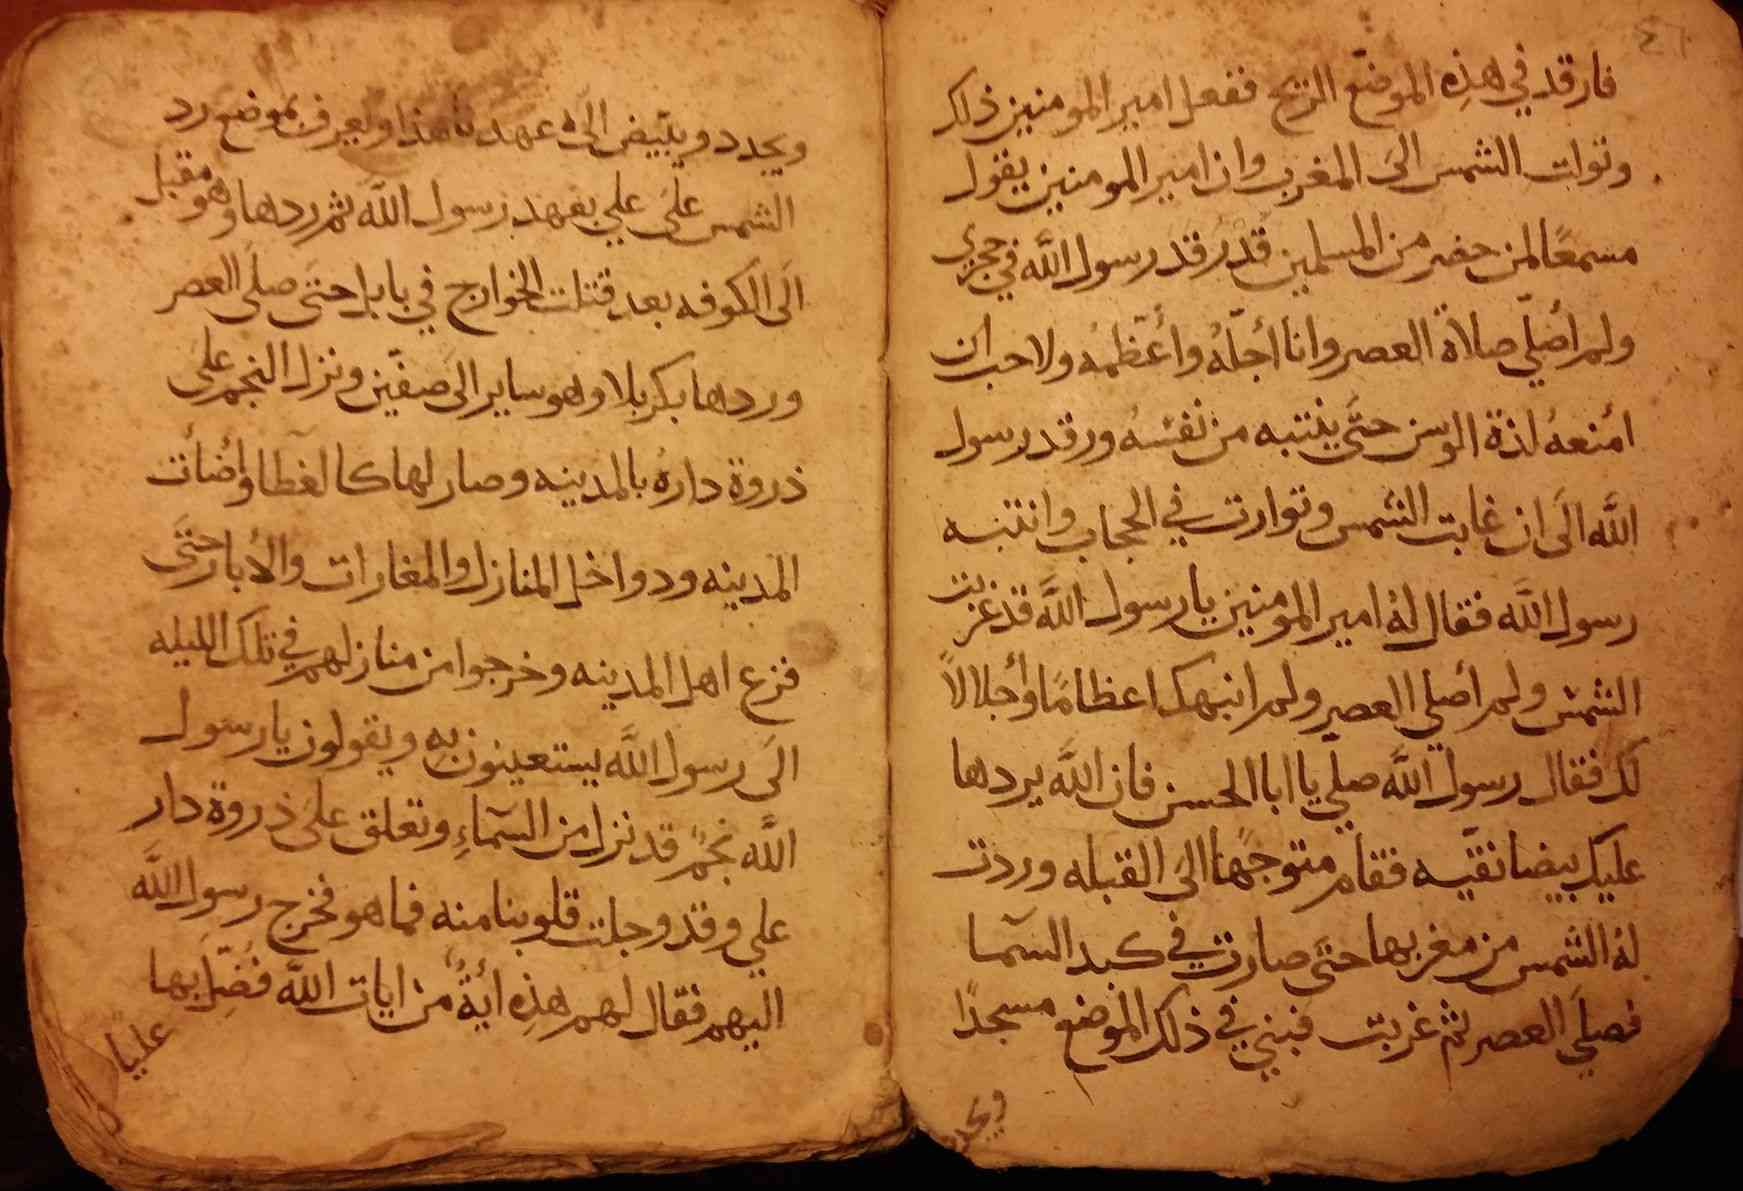 ٤٦
فارقد في هذِه الموضع الريح ففعل امير المومنين ذلك
وتوات الشمس الىَ المغرب وان امير المومنين يقول
مسمعًا لمن حضر من المسلمين قَدْ رَقد رسول اللَّه في حجري
ولم اُصَلّي صلاة العصر وانا اُجلّهُ واُعَظّمهُ ولا احب ان
امنعهُ لذة الوسن حتَّى ينتبه من نفسهُ ورقد رسول
اللَّه الىَ ان غابت الشمس وتوارت في الحجاب وانتبه
رسول اللَّه فقال لهُ امير المومنين يا رسول اللَّه قد غربت
الشمش ولم اصلي العصر ولم انبهك اعظامًا واُجلالاً
لَك فقال رسول اللَّه صلّي يا ابا الحسن فان اللَّه يردها
عليك بيضا نقيّه فقام متوجهًا الىَ القبله وردت
لهُ الشمس من مغربها حتَّى صارت في كبد السّما
فصلَى العصر ثم غربت فبني في ذلك الموضع مسجدًا
ويجدد
ويجدد ويبيّض الىَ عهدنا هذا ويعرف بموضع رد
الشمس علىَ علي بعهد رسول اللَّه ثم ردها وهو مقبل
الىَ الكوفه بعد قتلت الخوارج في بابل حتىَ صلىَ العصر
وردها بكربلا وهو ساير الىَ صفيّن ونزل النجم علىَ
ذروة دارهُ بالمدينه وصار لها كالغطا واُضأت
المدينه ودواخل المنازل والمغارات والأبار حتَّى
فزع اهل المدينه وخرجوا من منازلهم في تلك الليله
الىَ رسول اللَّه يستعينون به ويقولون يا رسول
اللَّه نجمٌ قد نزل من السّماءِ وتعلق علىَ ذروة دار
علي وقد وجلت قلوبنا منه فما هو فخرج رسول اللَّه
اليهم فقال لهم هذِه اُيةٌ من ايات اللَّه فُضّل بها
عليا